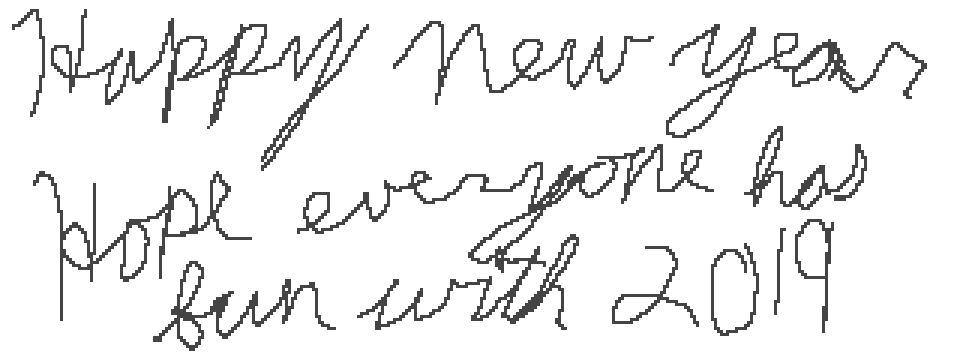 Happy New year
Hope everyone has
fun with 2019